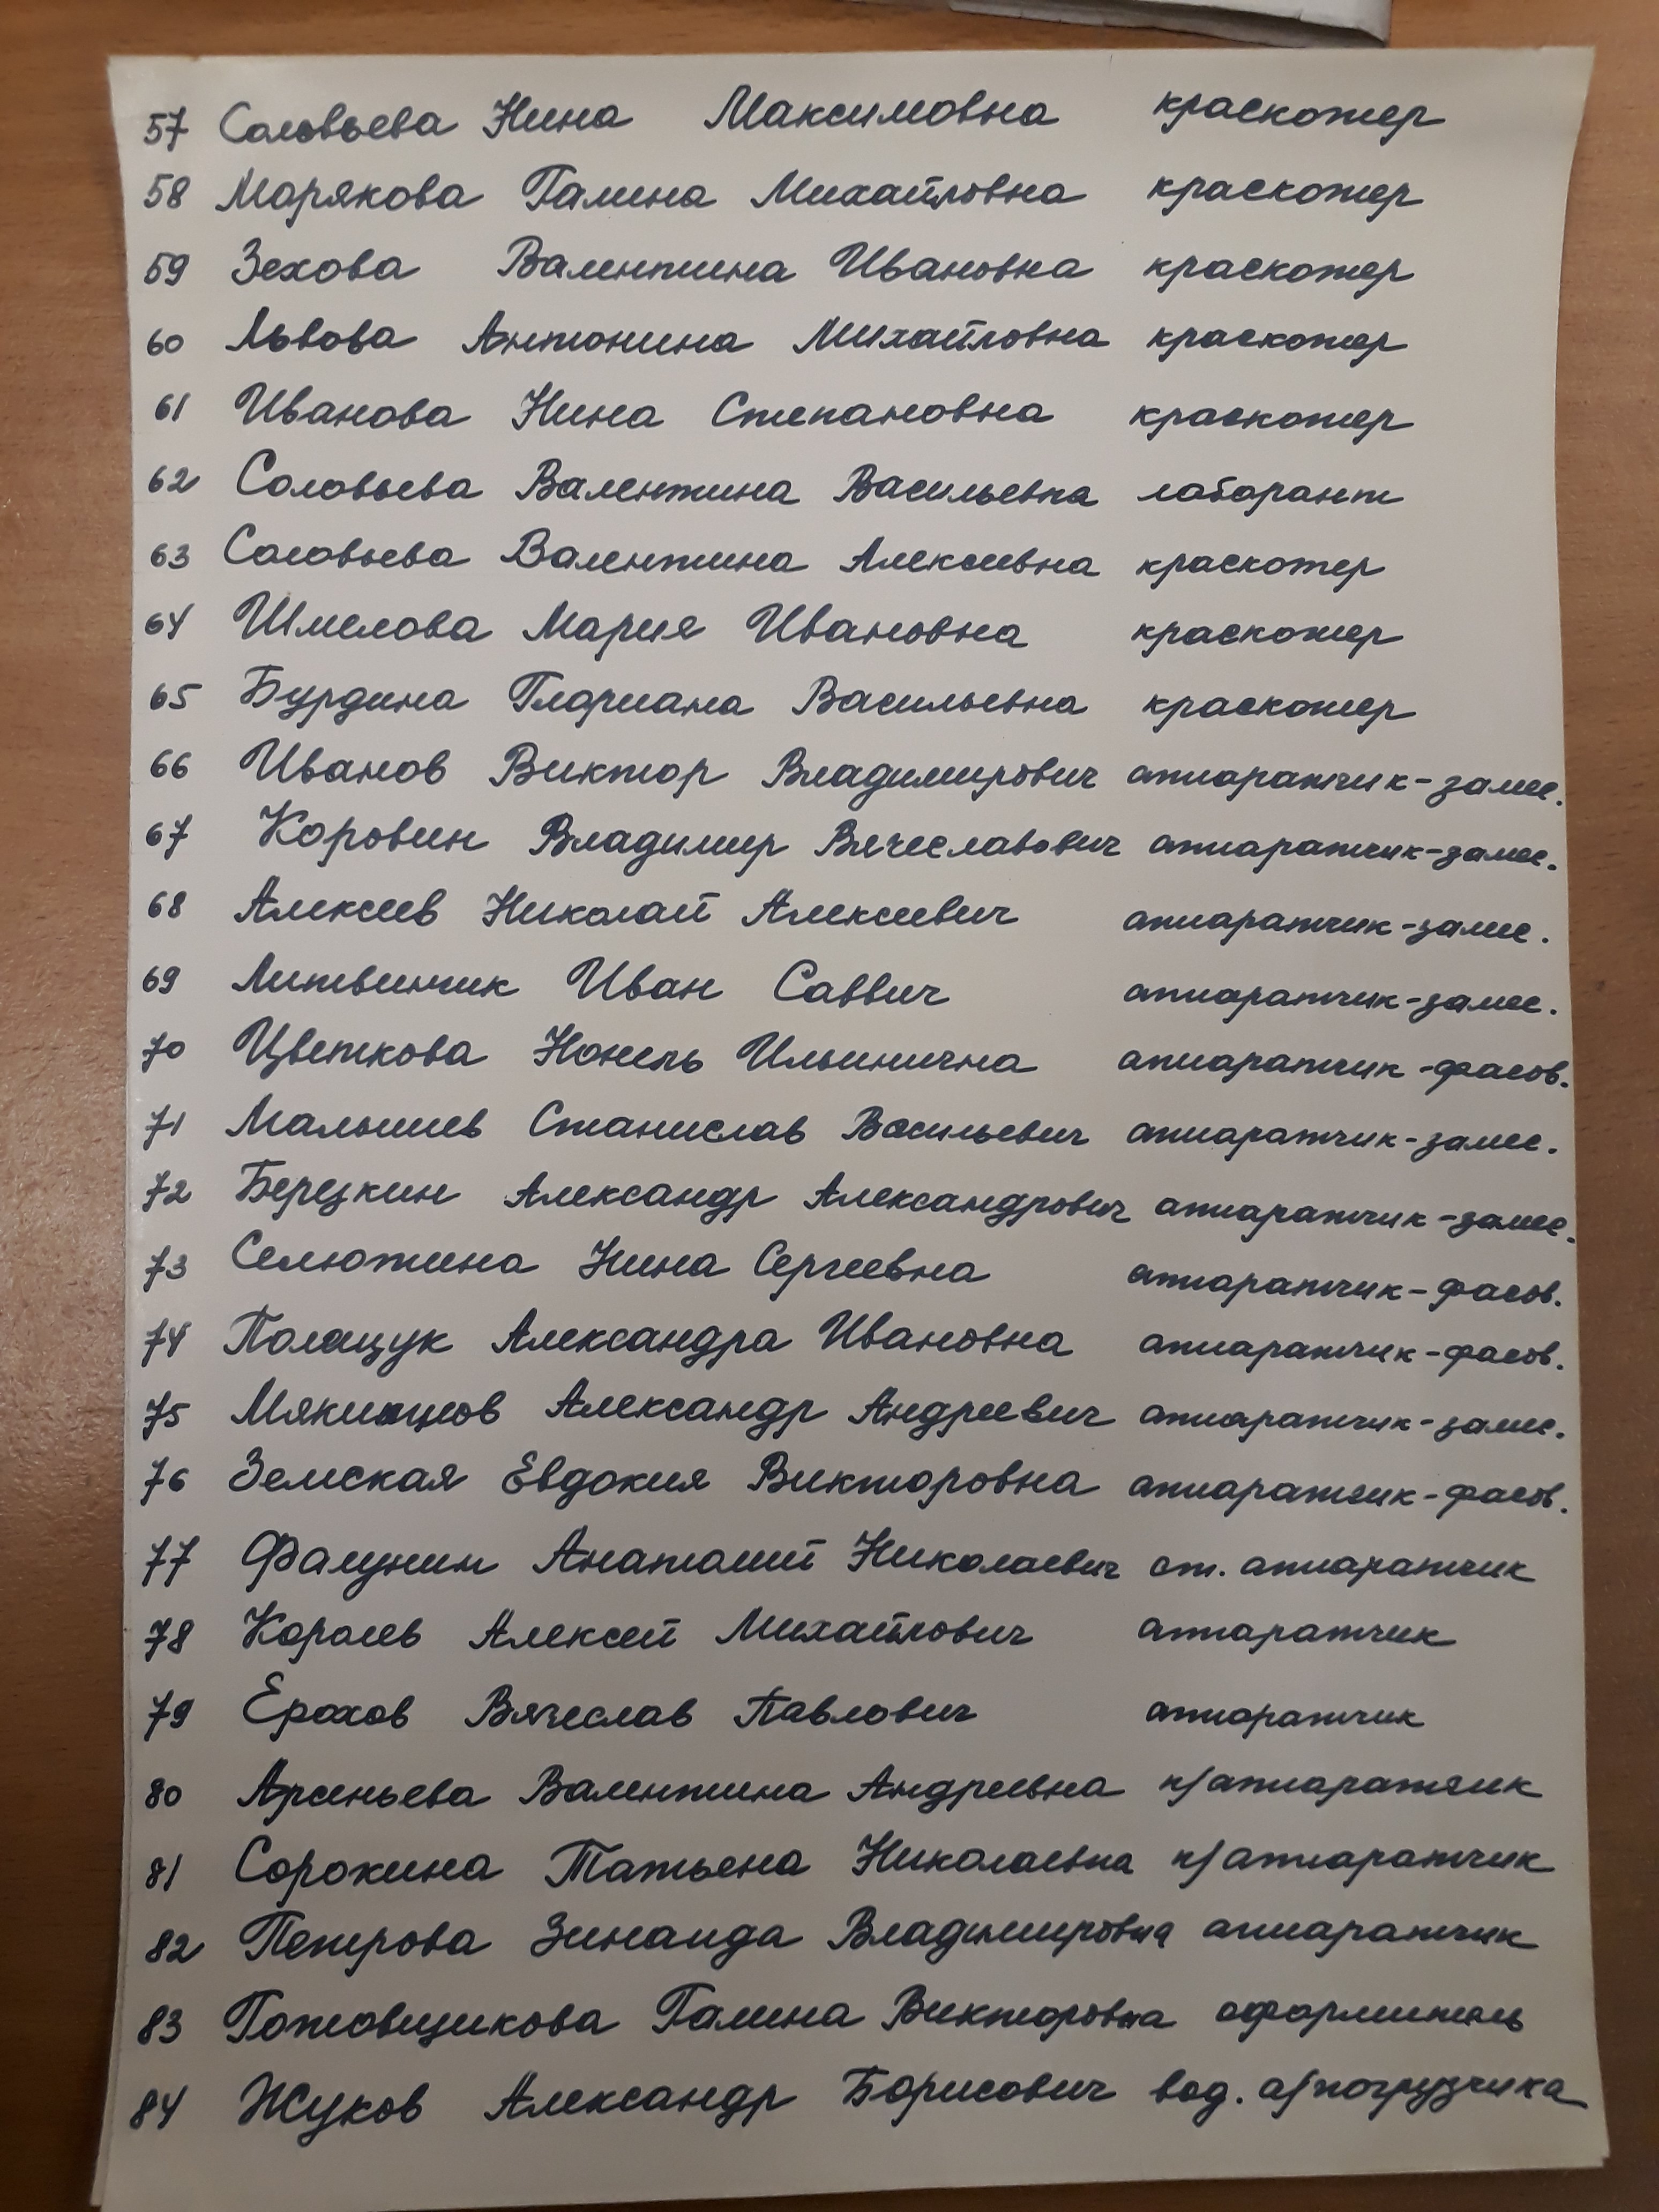 57 Соловьева Нина Максимовна краскотер
58 Морякова Галина Михайловна краскотер
59 Зехова Валентина Ивановна краскотер
60 Львова Антонина Михайловна краскотер
61 Иванова Нина Степановна краскотер
62 Соловьева Валентина Васильевна лаборант
63 Соловьева Валентина Алексеевна краскотер
64 Шмелова Мария Ивановна краскотер
65 Бурдина Глориана Васильевна краскотер
66 Иванов Виктор Владимирович аппаратчик-замес.
67 Коровин Владимир Вячеславович аппаратчик-замес.
68 Алексеев Николай Алексеевич аппаратчик-замес.
69 Литвинчик Иван Саввич аппаратчик-замес.
70 Цветкова Нонель Ильинична аппаратчик-фасов.
71 Малышев Станислав Васильевич аппаратчик-замес.
72 Березкин Александр Александрович аппаратчик-замес.
73 Селютина Нина Сергеевна аппаратчик-фасов.
74 Полещук Александра Ивановна аппаратчик-фасов.
75 Александр Андреевич аппаратчик-замес.
76 Земская Евдокия Викторовна аппаратчик-фасов.
77 Фалунин Анатолий Николаевич ст. аппаратчик
78 Королев Алексей Михайлович аппаратчик
79 Ерохов Вячеслав Павлович аппаратчик
80 Арсеньева Валентина Андреевна п/аппаратчик
81 Сорокина Татьена Николаевна п/аппаратчик
82 Петрова Зинаида Владимировна аппаратчик
83 Готовщикова Галина Викторовна оформитель
84 Жуков Александр Борисович вод. а/погрузчика